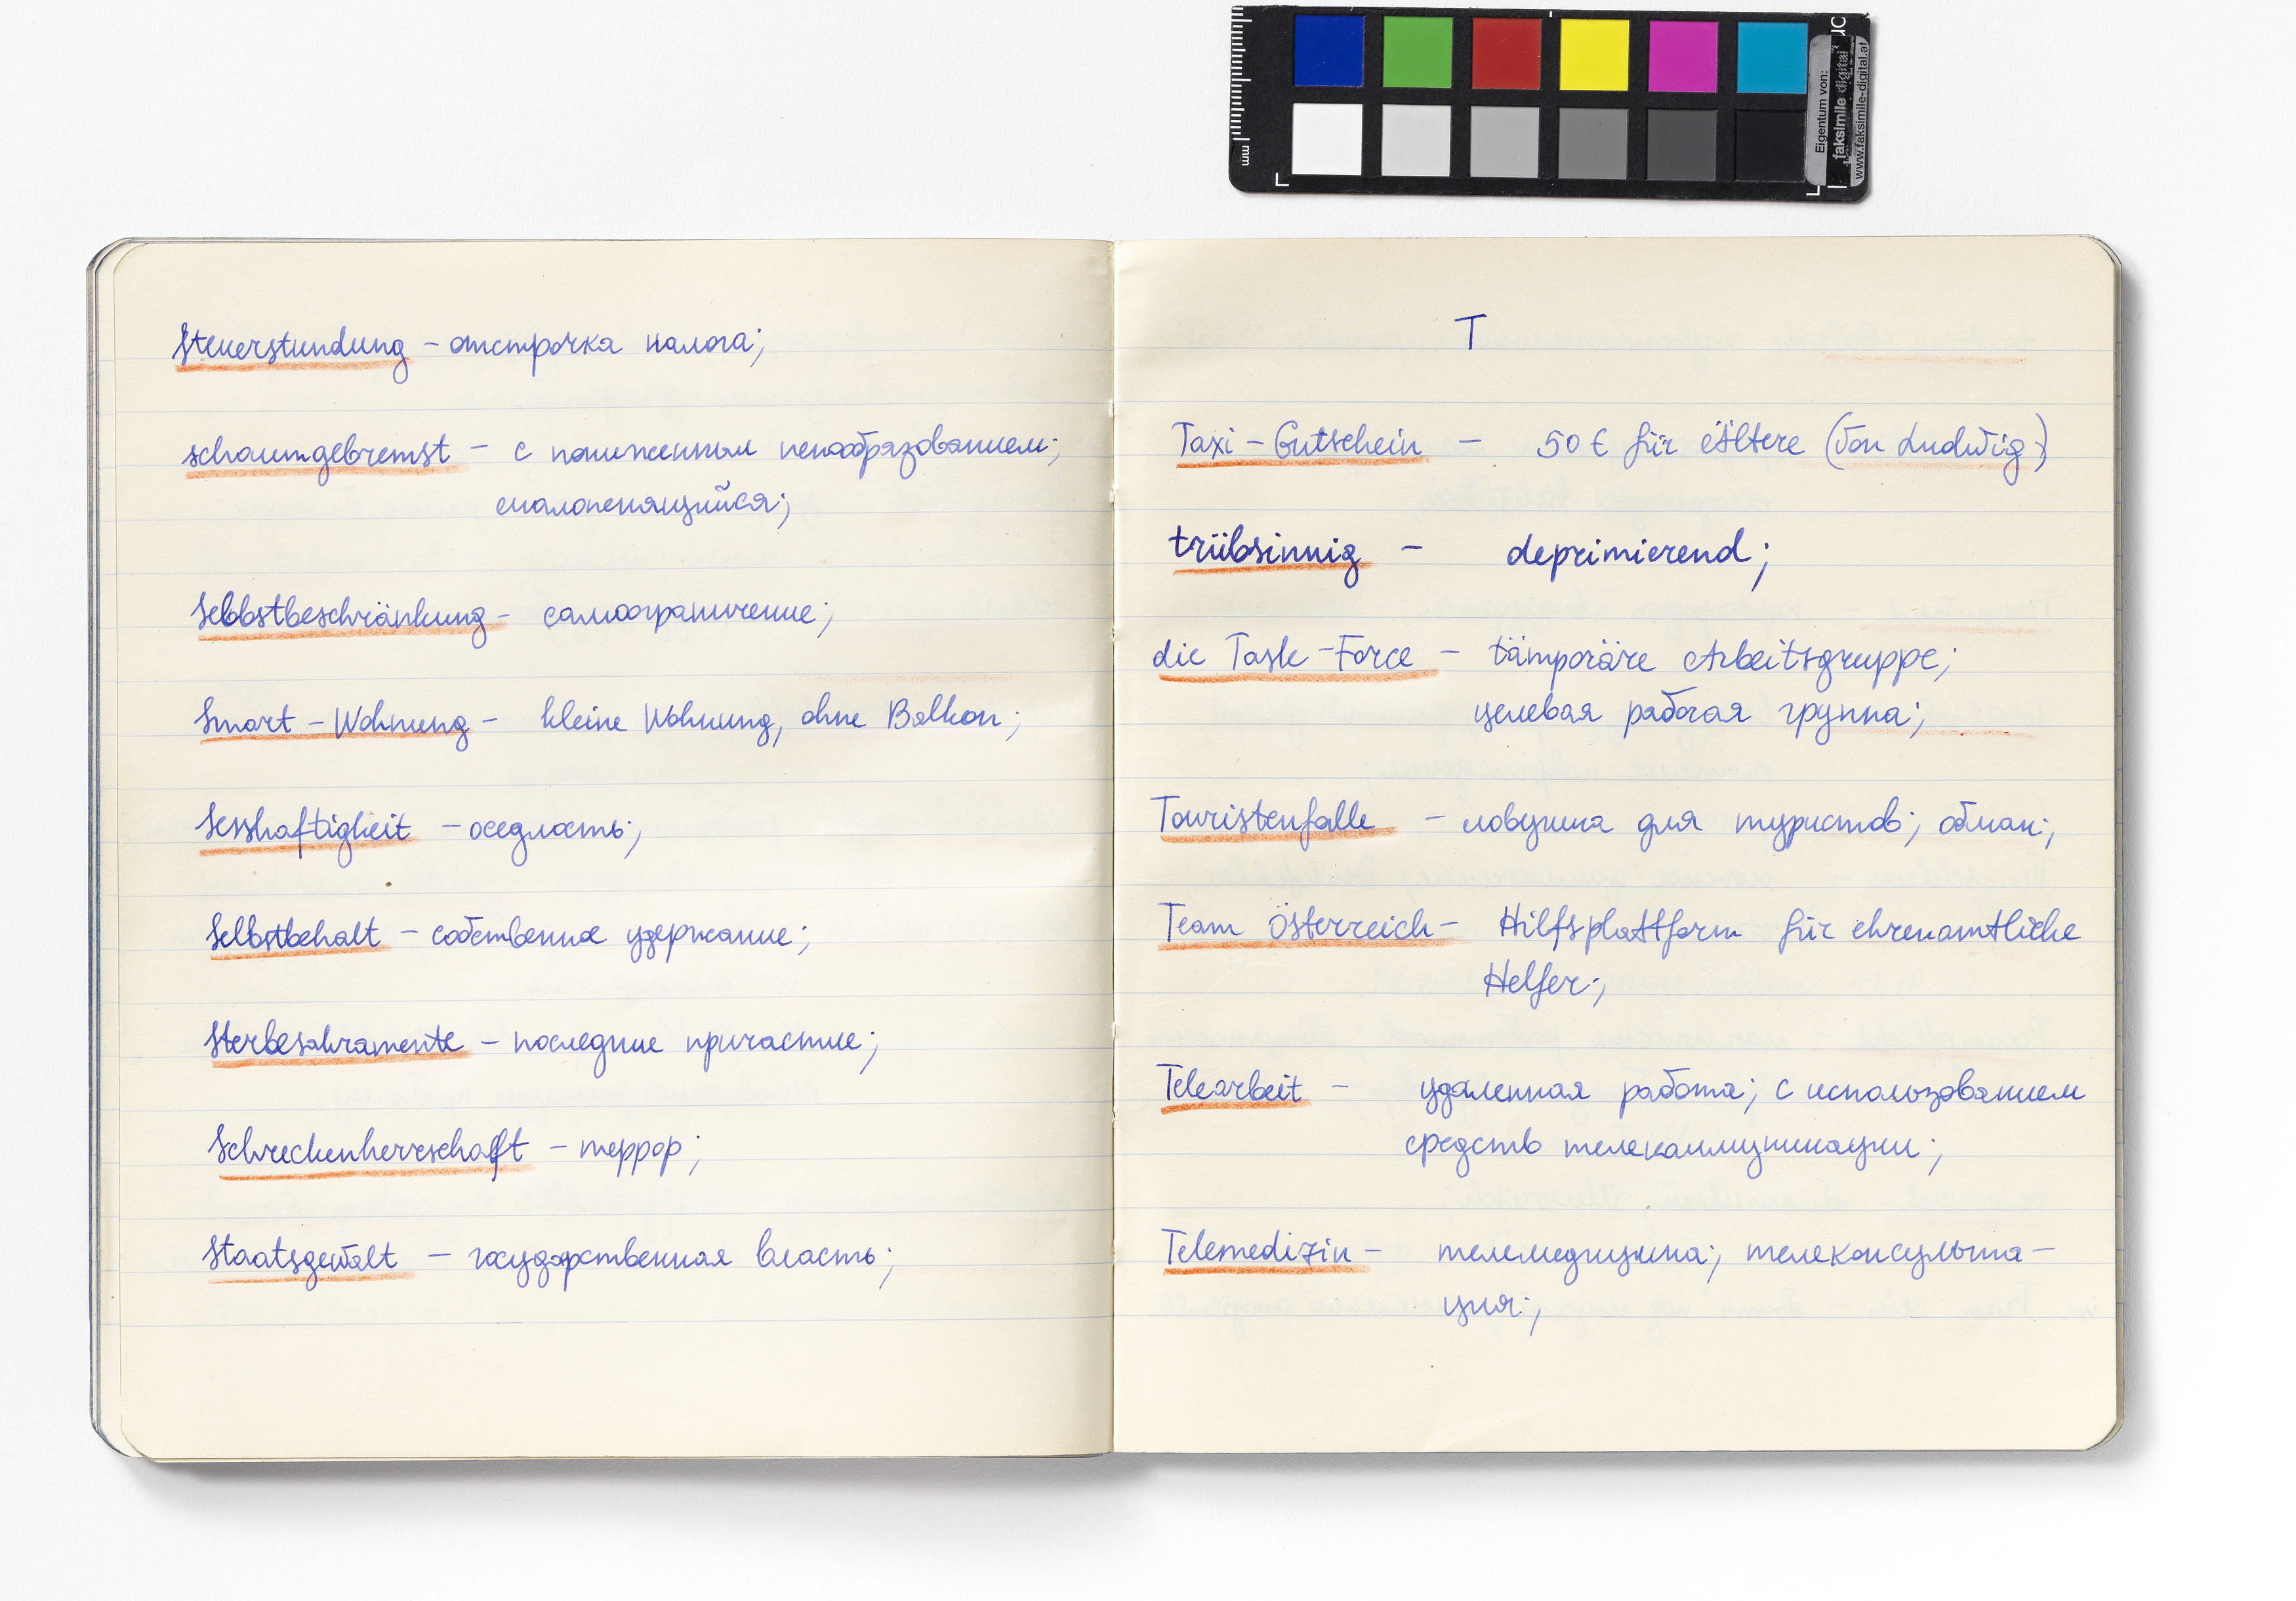 Steuerstundung – отстрочка налога;
schaumgebremst – с пониженным пенообразованием;
малопенящийся;
Selbstbeschränkung – самоограничение;
Smart-Wohnung – kleine Wohnung, ohne Balkon;
Sesshaftigkeit – оседлость;
Selbstbehalt – собственное удержание;
Sterbesakramente – последние причастие;
Schreckenherrschaft – террор;
Staatsgewalt – государственная власть;
T
Taxi-Gutschein – 50 € für Ältere (von Ludwig)
trübsinnig – deprimierend;
die Task-Force – tämporäre Arbeitsgruppe;
целевая рабочая группа;
Touristenfalle – ловушка для туристов; обман;
Team Österreich – Hilfsplattform für ehrenamtliche
Helfer;
Telearbeit – удаленная работа; с использованием
средств телекоммуникации;
Telemedizin – телемедицина; телеконсульта-
ция;
mm
Eigentum von:
faksimile digital
www.faksimile-digital.at